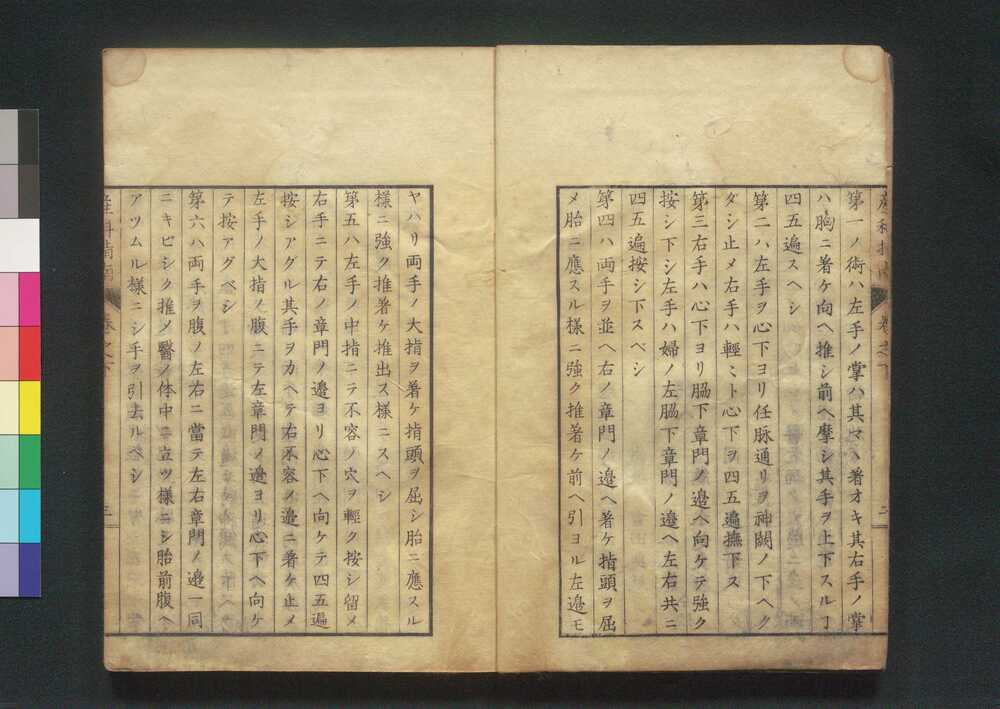 第一ノ術ハ左手ノ掌ハ其マヽ著オキ其右手ノ掌
ハ胸ニ著ケ向ヘ推シ前ヘ摩シ其手ヲ上下スルヿ
四五遍スヘシ
第二ハ左手ヲ心下ヨリ任脉通リヲ神闕ノ下ヘク
ダシ止メ右手ハ輕ミト心下ヲ四五遍撫下ス
第三右手ハ心下ヨリ脇下章門ノ邉ヘ向ケテ強ク
按シ下シ左手ハ婦ノ左脇下章門ノ邉ヘ左右共ニ
四五遍按シ下スベシ
第四ハ両手ヲ並ヘ右ノ章門ノ邉ヘ著ケ指頭ヲ屈
メ胎ニ應スル様ニ強ク推著ケ前ヘ引ヨル左邉モ
ヤハリ両手ノ大指ヲ著ケ指頭ヲ屈シ胎ニ應スル
様ニ強ク推著ケ推出ス様ニスヘシ
第五ハ左手ノ中指ニテ不容ノ穴ヲ輕ク按シ留メ
右手ニテ右ノ章門ノ邉ヨリ心下ヘ向ケテ四五遍
按シアグル其手ヲカヘテ右不容ノ邉ニ著ケ止メ
左手ノ大指ノ腹ニテ左章門ノ邉ヨリ心下ヘ向ケ
テ按アグベシ
第六ハ両手ヲ腹ノ左右ニ當テ左右章門ノ邉一同
ニキビシク推メ醫ノ体中ニ立ツ様ニシ胎前腹ヘ
アツムル様ニシ手ヲ引去ルベシ
産科指南
巻之下
三